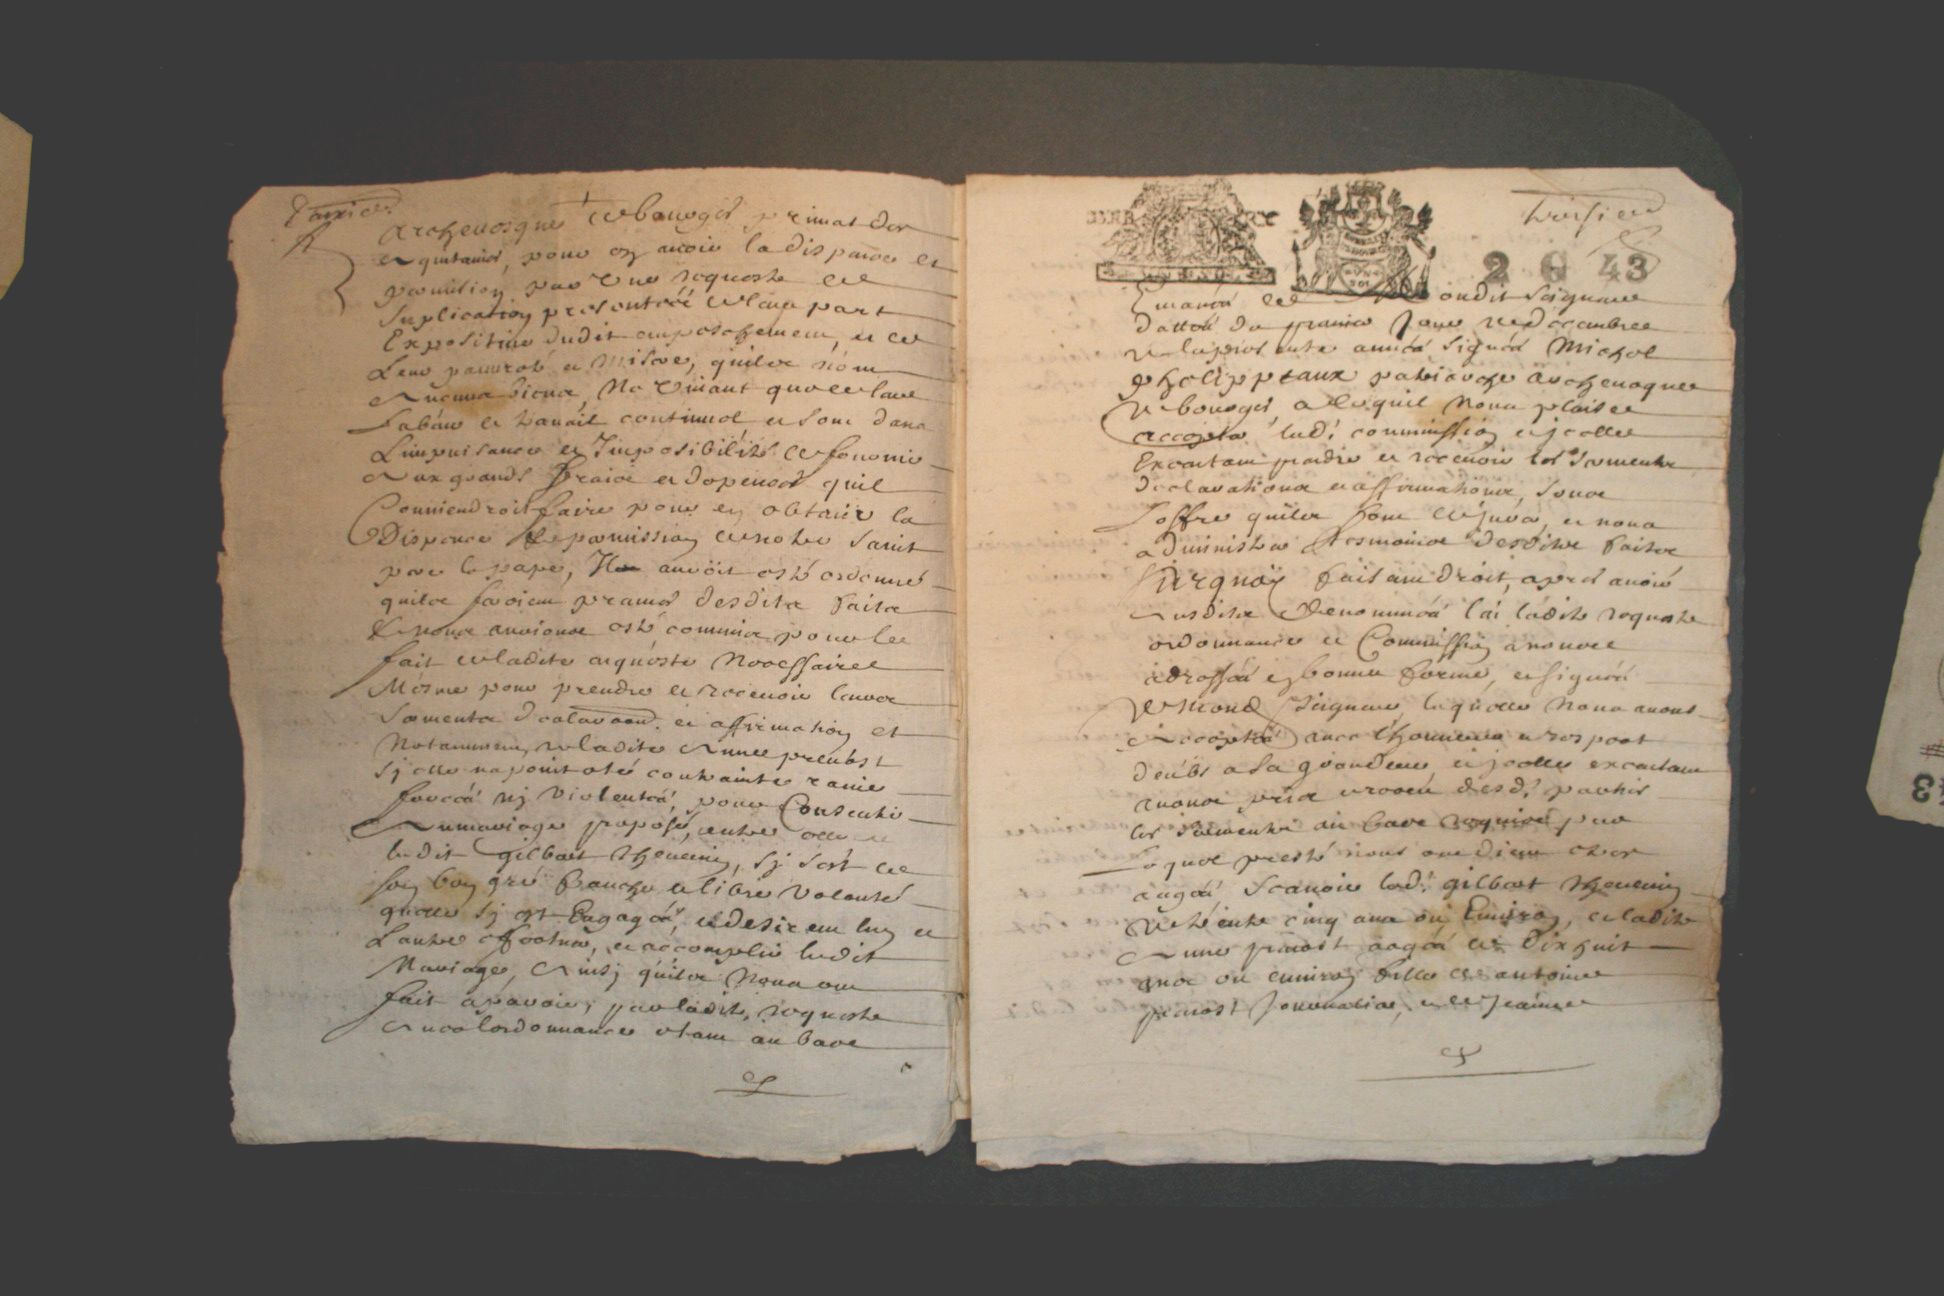 Archevesque de bourges primat des
Aquitaines, pour en avoir la dispance et
permition par une requeste de
suplication presentée de leur part
Expositive dudit empeschement, et de
Leur pauvreté et misere, quilz nont
Aucuns biens, Ne vivant que de leur
Labeur et travail continuel et sont dans
Limpuisance et Imposibilité de fournir
Aux grands fraicz et depences quil
Conviendroit faire pour en obtenir la
Dispence & permission de notre saint
pere le pape, Il auroit esté ordonné
quilz feroient preuves desditz faitz
Et nous aurions esté commis pour le
fait de ladite enqueste Necessaire
Mesme pour prendre et recevoir leurs
sermentz declaraōns et affirmation et
Notamment de ladite Anne prevost
sy elle na point esté contrainte ravie
forcée ny violentée, pour Consentir
Au mariage proposé, entre elle et
ledit gilbert thevenin, sy sest de
son bon gré franche et libre volonté
quelle sy est Engagée, et desirent lun et
Lautre effectuer, et accomplir ledit
Mariage, Ainsy quilz Nous ont
fait aparoir, par ladite requeste
Avec lordonnance estant au bas
2 43
dattée du premier jour de decembre
de la presente année signée Michel
phelippeaux patriarche archevesque
de bourges, a ce quil nous plaise
accepter lad.t commission et jcelle
Executant prendre et recevoir les sermentz
declarations et affirmations, soubz
Loffre quilz font de jurer, et nous
administrer tesmoins desditz faitz
surquoy faisant droit, apres avoir
Ausditz denommés leu ladite requeste
ordonnance et Commission a nous
adressée en bonne forme, et signée
de mond.t seigneur laquelle Nous avons
Acceptée avec lhonneur et respect
deubs a sa grandeur et jcelle executant
avons pris et receu desd.t parties
les sermentz au cas requis par
lequel presté nous ont dit estre
aagés scavoir led.t gilbert thevenin
de trente cinq ans ou Environ, et ladite
Anne prevost aagée de dix huit
ans ou environ fille de antoine
prevost journalier, et de jeanne